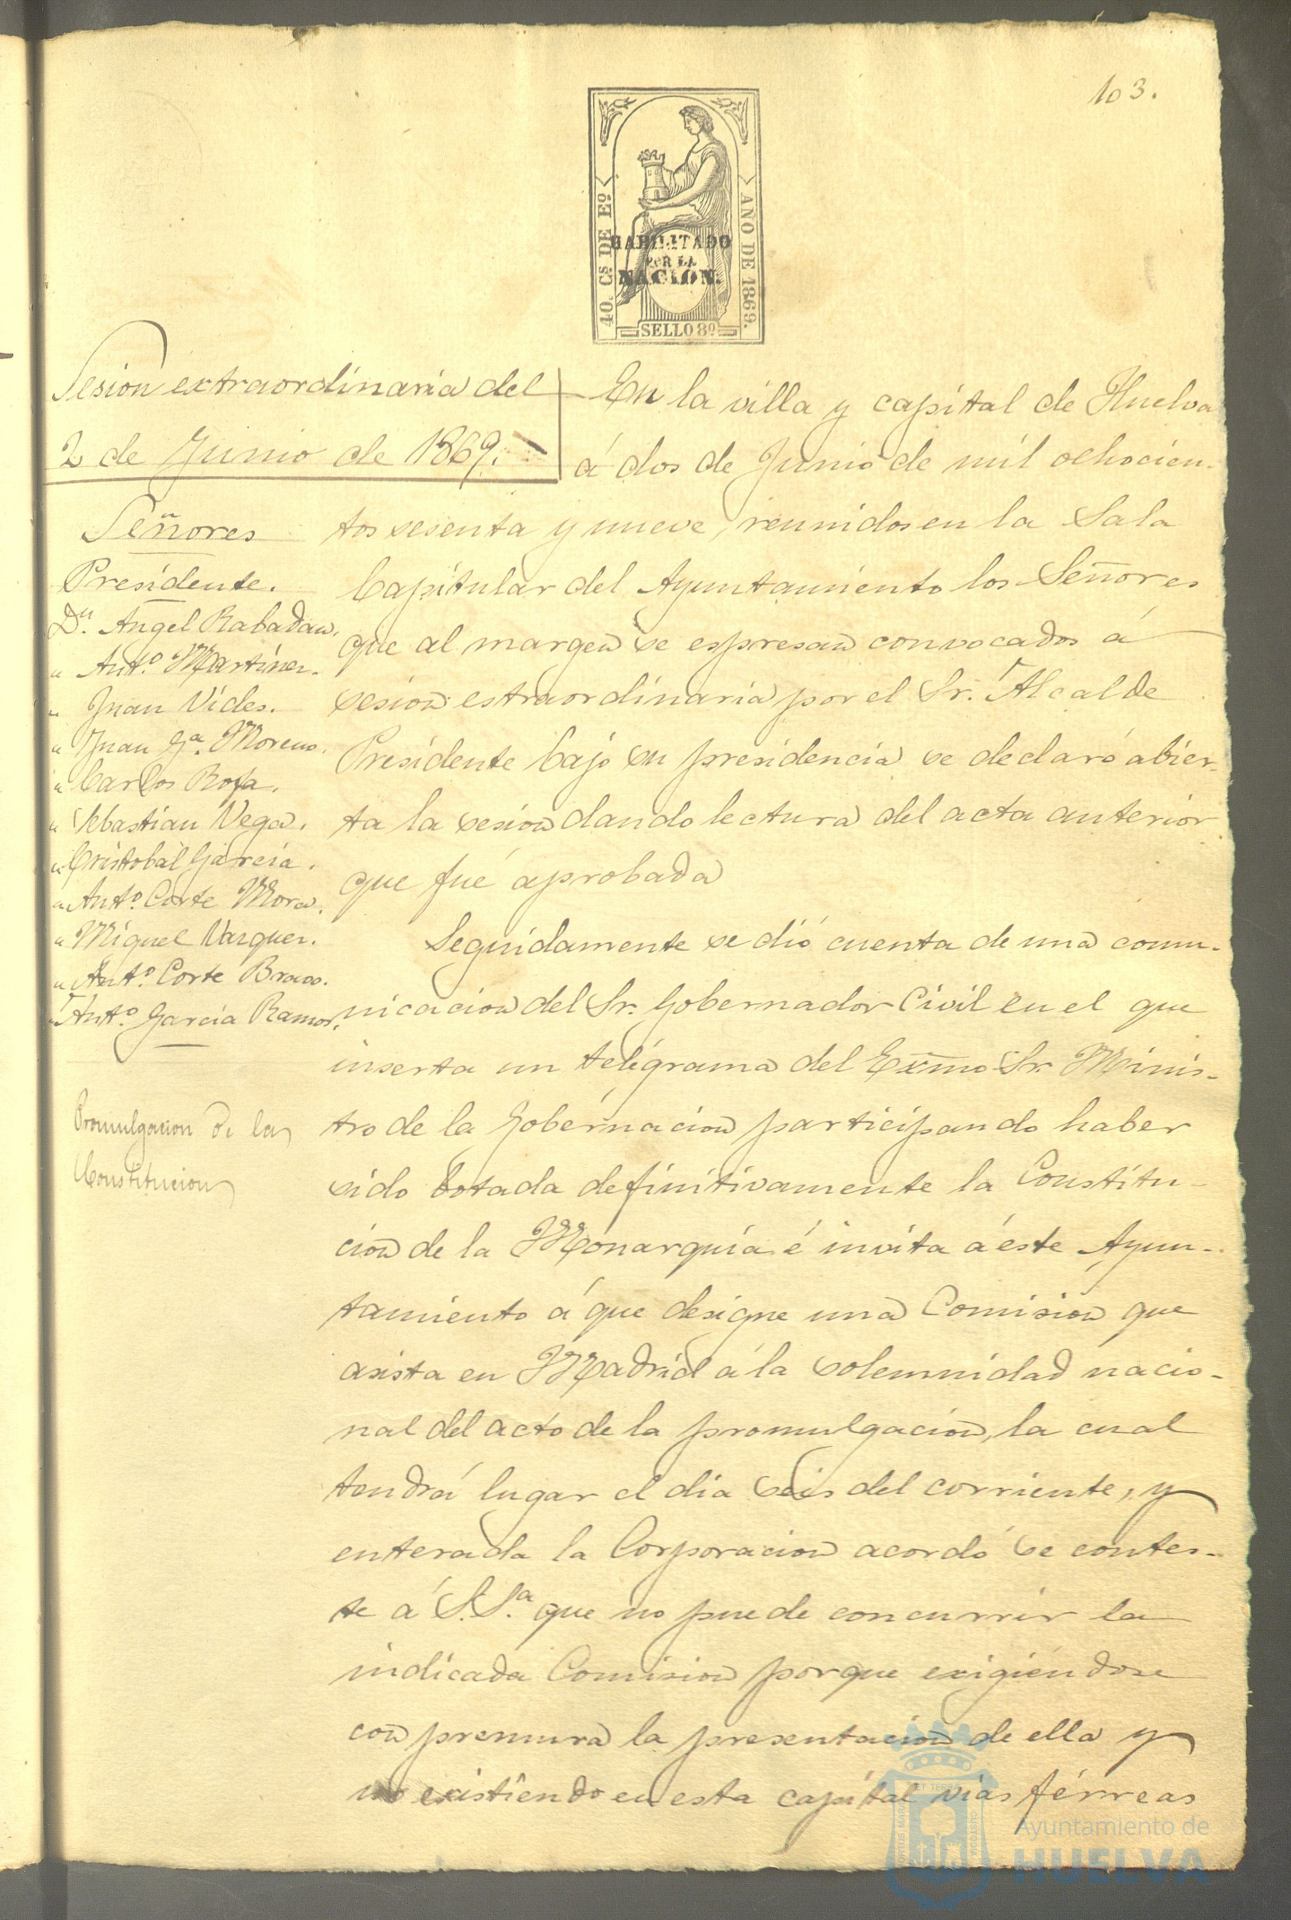 103.
40. Cs DE Eo.
AÑO DE 1869.
HABILITADO
POR LA
NACION.
SELLO 8º
Sesion extraordinaria del
2 de Junio de 1869.
Señores
Presidente.
Dn. Angel Rabadan.
" Antº Martinez.
" Juan Vides.
" Juan Gª. Moreno.
" Carlos Roja.
" Sebastian Vega.
" Cristobal Garcia.
" Antº. Corte Mora.
" Miguel Vazquez.
" Antº. Corte Bravo.
" Antº. Garcia Ramos.
Promulgacion de la
Constitucion
En la villa y capital de Huelva
á dos de Junio de mil ochocien-
tos sesenta y nueve, reunidos en la Sala
Capitular del Ayuntamiento los Señores
que al margen se espresan convocados á
sesion estraordinaria por el Sr. Alcalde
Presidente bajo su presidencia se declaró abier-
ta la sesion dando lectura del acta anterior
que fué aprobada
Seguidamente se dió cuenta de una comu-
nicacion del Sr. Gobernador Civil en el que
inserta un telégrama del Exmo Sr. Minis-
tro de la Gobernacion participando haber
sido botada definitivamente la Constitu-
cion de la Monarquia é invita á este Ayun-
tamiento á que designe una Comision que
asista en Madrid á la solemnidad nacio-
nal del acto de la promulgacion, la cual
tendrá lugar el dia seis del corriente, y
enterada la Corporacion acordó se contes-
te á S.Sª. que no puede concurrir la
indicada Comision porque exigiéndose
con premura la presentacion de ella y
no existiendo en esta capital vias férreas
Ayuntamiento de
HUELVA